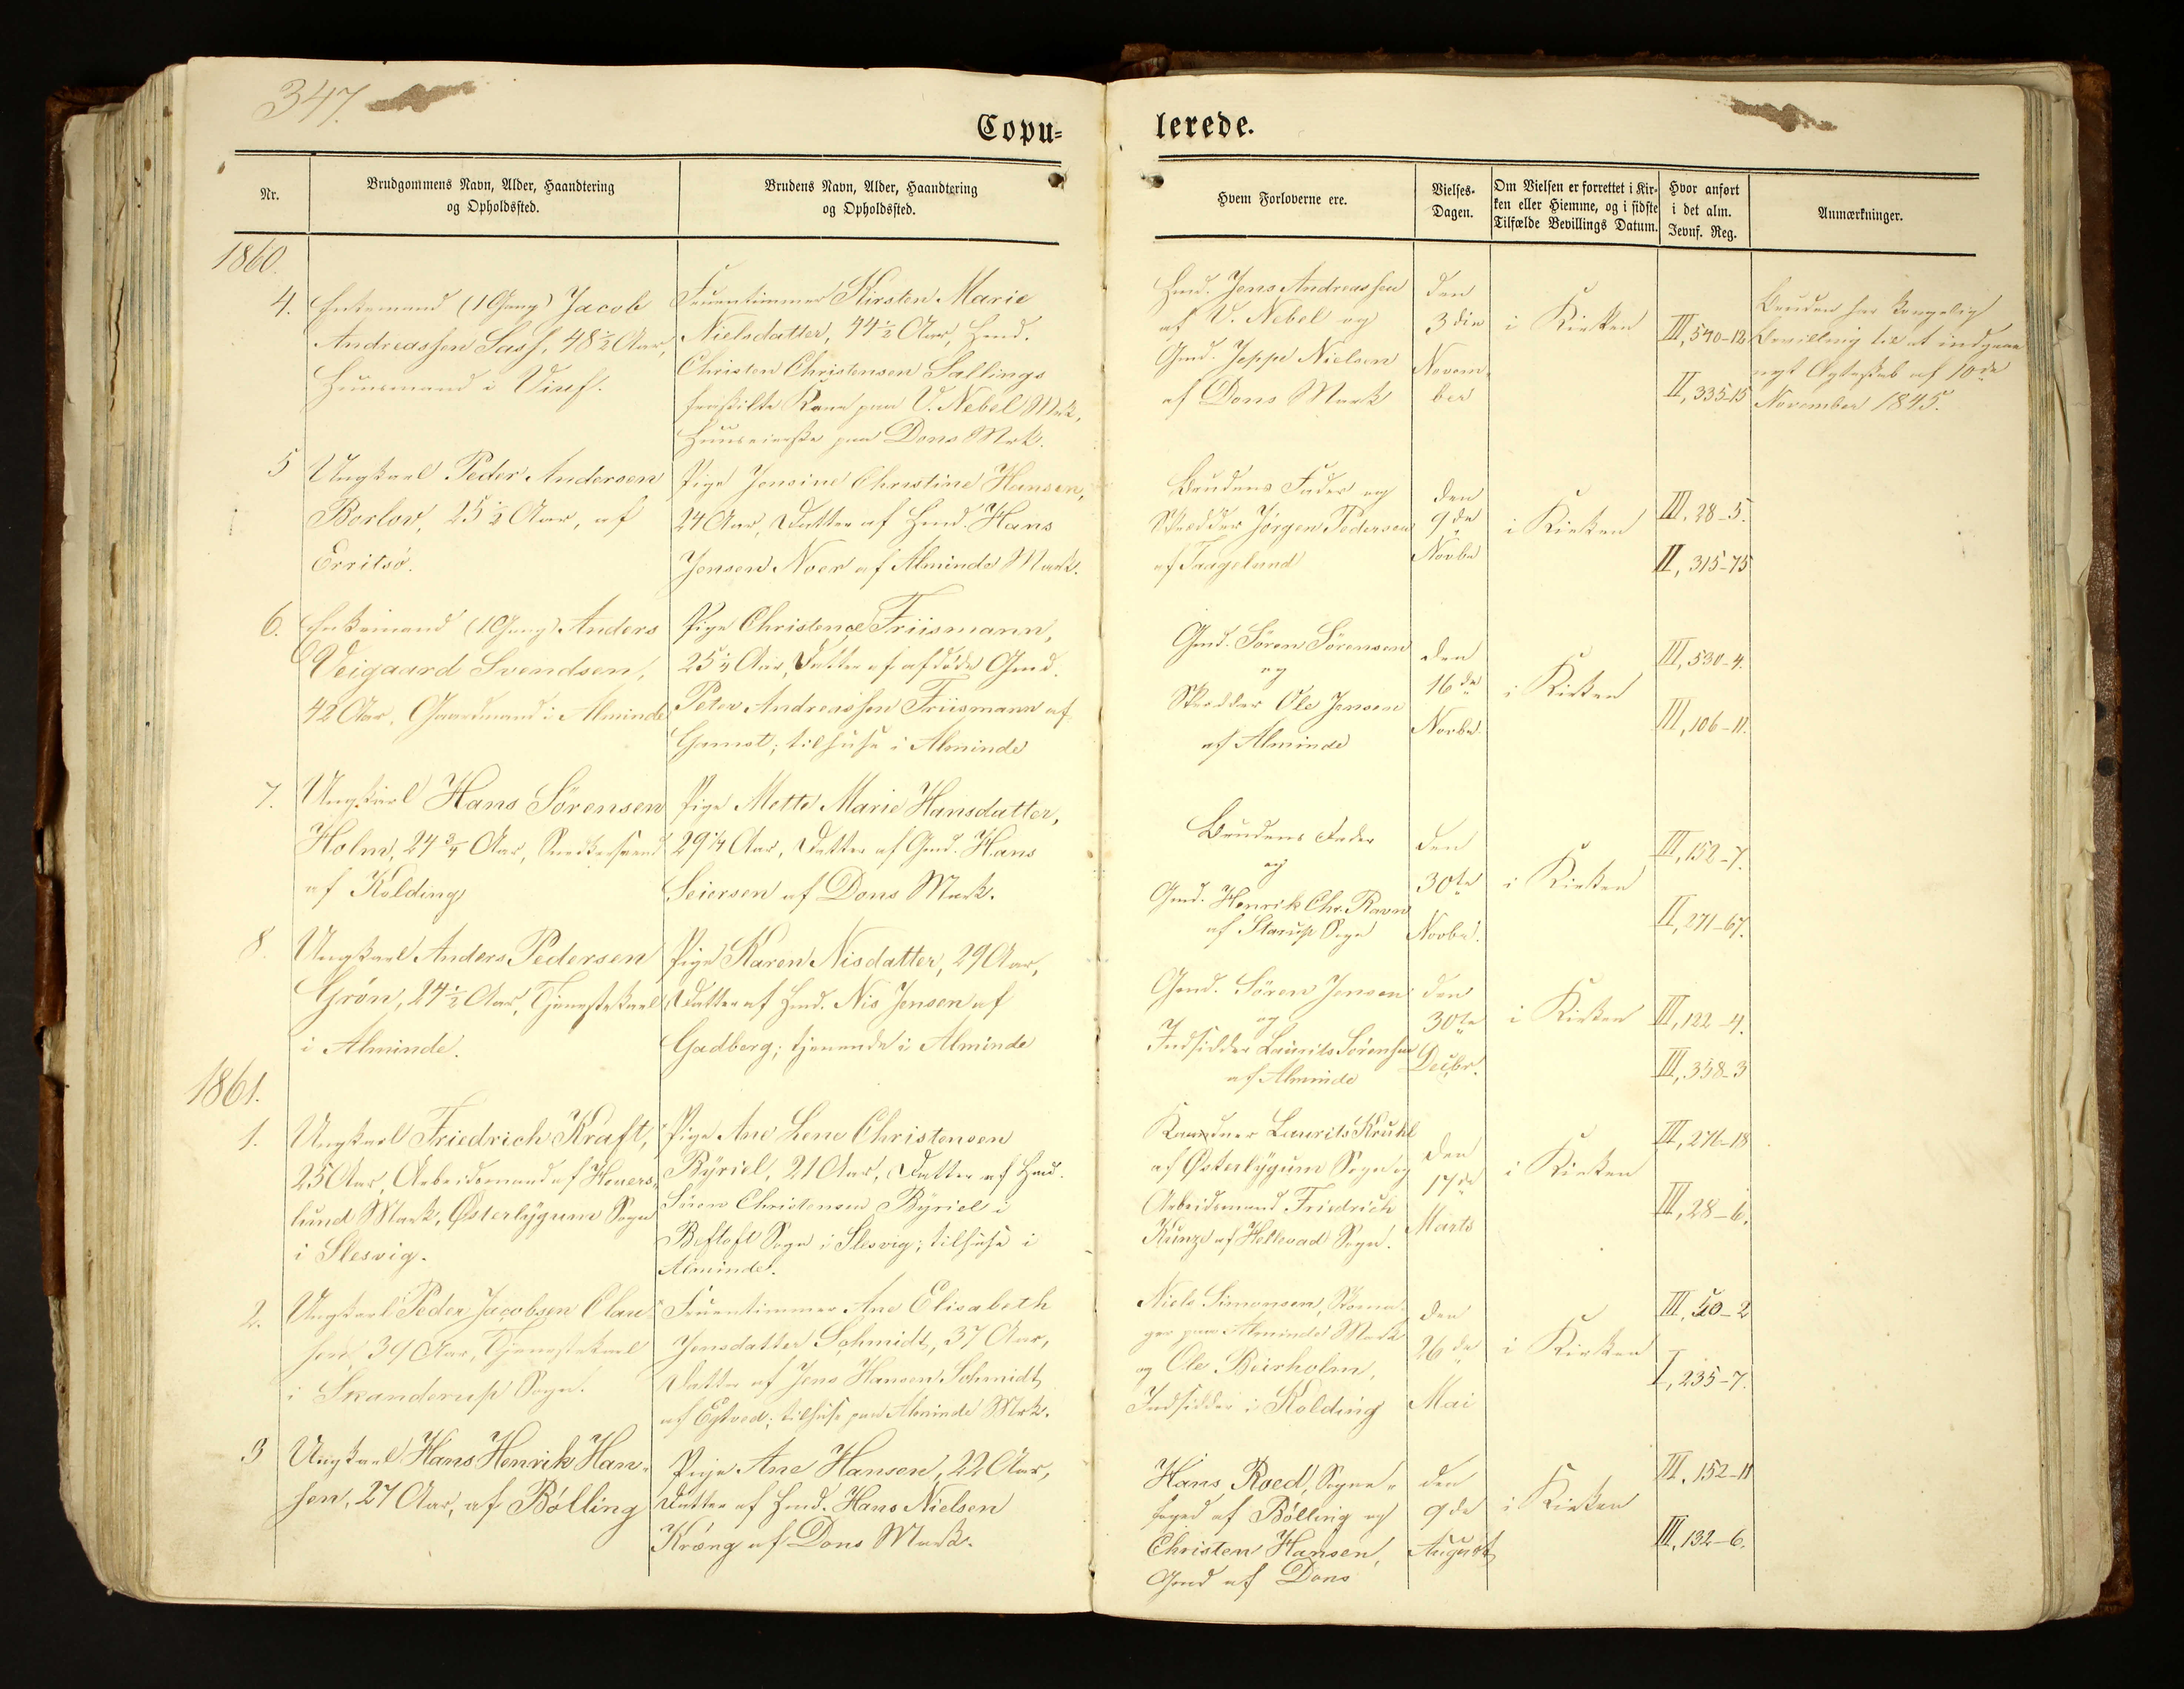 347.
Copu=
lerede.
Nr.
Brudgommens Navn, Alder, Haandtering
og Opholdssted.
Brudens Navn, Alder, Haandtering
og Opholdssted.
Hvem Forloverne ere.
Vielses-
Dagen.
Om Vielsen er forrettet i Kir-
ken eller Hiemme, og i sidste
Tilfælde Bevillings Datum.
Hvor anført
i det alm.
Jevnf. Reg.
Anmærkninger.
1860.
4.
Enkemand (1 Gang) Jacob
Andreassen Sass, 48½ Aar,
Huusmand i Viuf.
Fruentimmer Kirsten Marie
Nielsdatter, 44½ Aar, Hmd.
Christen Christensen Sallings
fraskilte Kone paa V. Nebel Mrk,
Huuseierske paa Dons Mrk.
Hmd. Jens Andreassen
af V. Nebel og
Gmd. Jeppe Nielsen
af Dons Mark
den
3die
Novem-
ber
i Kirken
III, 540-12
II, 335-15
Bruden har kongelig
Bevilling til at indgaae
nyt Ægteskab af 10de
November 1845.
5
Ungkarl Peder Andersen
Borlov, 25½ Aar, af
Erritsø.
Pige Jensine Christine Hansen,
24 Aar, Datter af Hmd. Hans
Jensen Noer af Alminde Mark.
Brudens Fader og
Skrædder Jørgen Pedersen
af Taagelund
den
9de
Novbr
i Kirken
III, 28-5.
II, 315-75
6.
Enkemand (1 Gang) Anders
Veigaard Svendsen,
42 Aar, Gaardmand i Alminde
Pige Christence Friismann,
25¼ Aar, Datter af afdøde Gmd.
Peter Andreassen Friismann af
Gamst; tilhuse i Alminde
Gmd. Sören Sörensen
og
Skrædder Ole Jensen
af Alminde
den
16de
Novbr.
i Kirken
III, 530-4.
III, 106-11.
7.
Ungkarl Hans Sörensen
Holm, 24¾ Aar, Snedkersvend
af Kolding
Pige Mette Marie Hansdatter,
29¼ Aar, Datter af Gmd. Hans
Seiersen af Dons Mark.
Brudens Fader
og
Gmd. Henrik Chr. Ravn
af Starup Sogn
den
30te
Novbr.
i Kirken
III, 152-7.
II, 271-67.
8.
Ungkarl Anders Pedersen
Grön, 24½ Aar, Tjenestekarl
i Alminde.
Pige Karen Nisdatter, 29 Aar,
Datter af Hmd. Nis Jensen af
Gadberg; tjenende i Alminde
Gmd. Sören Jensen
og
Indsidder Laurits Sörensen
af Alminde
den
30te
Decbr.
i Kirken
III, 122-4.
III, 358-3
1861.
1.
Ungkarl Friedrich Kraft,
25 Aar, Arbeidsmand af Hovers-
lund Mark, Østerlygum Sogn
i Slesvig.
Pige Ane Lene Christensen
Byriel, 21 Aar, Datter af Hmd.
Sören Christensen Byriel i
Beftoft Sogn i Slesvig; tilhuse i
Alminde.
Kaadner Laurits Kruhl
af Østerlygum Sogn og
Arbeidsmand Friedrich
Kunze af Hellevad Sogn.
den
17de
Marts
i Kirken
III, 276-18
III, 28-6.
2.
Ungkarl Peder Jacobsen Clau-
sen, 39 Aar, Tjenestekarl
i Skanderup Sogn.
Fruentimmer Ane Elisabeth
Jensdatter Schmidt, 37 Aar,
Datter af Jens Hansen Schmidt
af Egtved; tilhuse paa Alminde Mrk.
Niels Simonsen, Skoma-
ger paa Alminde Mark
og Ole Bierholm,
Indsidder i Kolding
den
26de
Mai
i Kirken
III, 50-2
I, 235-7.
3
Ungkarl Hans Henrik Han-
sen, 27 Aar, af Bölling
Pige Ane Hansen, 22 Aar,
Datter af Hmd. Hans Nielsen
Kræng af Dons Mark.
Hans Roed, Sogne-
foged af Bölling og
Christen Hansen,
Gmd af Dons
den
9de
August
i Kirken
III, 152-11
III, 132-6.